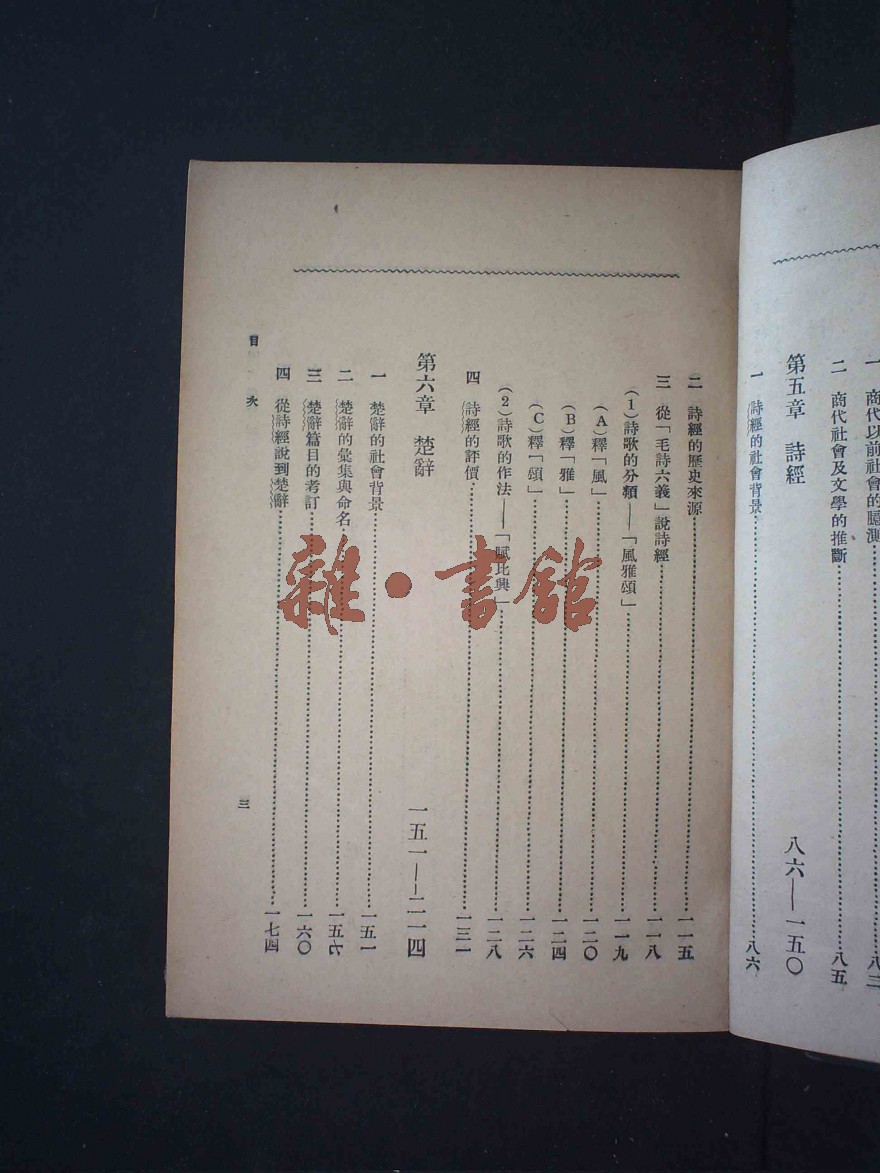 一 商代以前社會的臆測……八三
二 商代社會及文學的推斷……八五
第五章 詩經 八六——一五〇
一 詩經的社會背景……八六
二 詩經的歷史來源……一一五
三 從「毛詩六義」說詩經……一一八
(1)詩歌的分類——「風雅頌」……一一九
(A)釋「風」……一二〇
(B)釋「雅」……一二四
(C)釋「頌」……一二六
(2)詩歌的作法——「賦比興」……一二八
四 詩經的評價……一三一
第六章 楚辭 一五一——二一四
一 楚辭的社會背景……一五一
二 楚辭的彙集與命名……一五七
三 楚辭篇目的考訂……一六〇
四 從詩經說到楚辭……一七四
目次
三
雜·書館